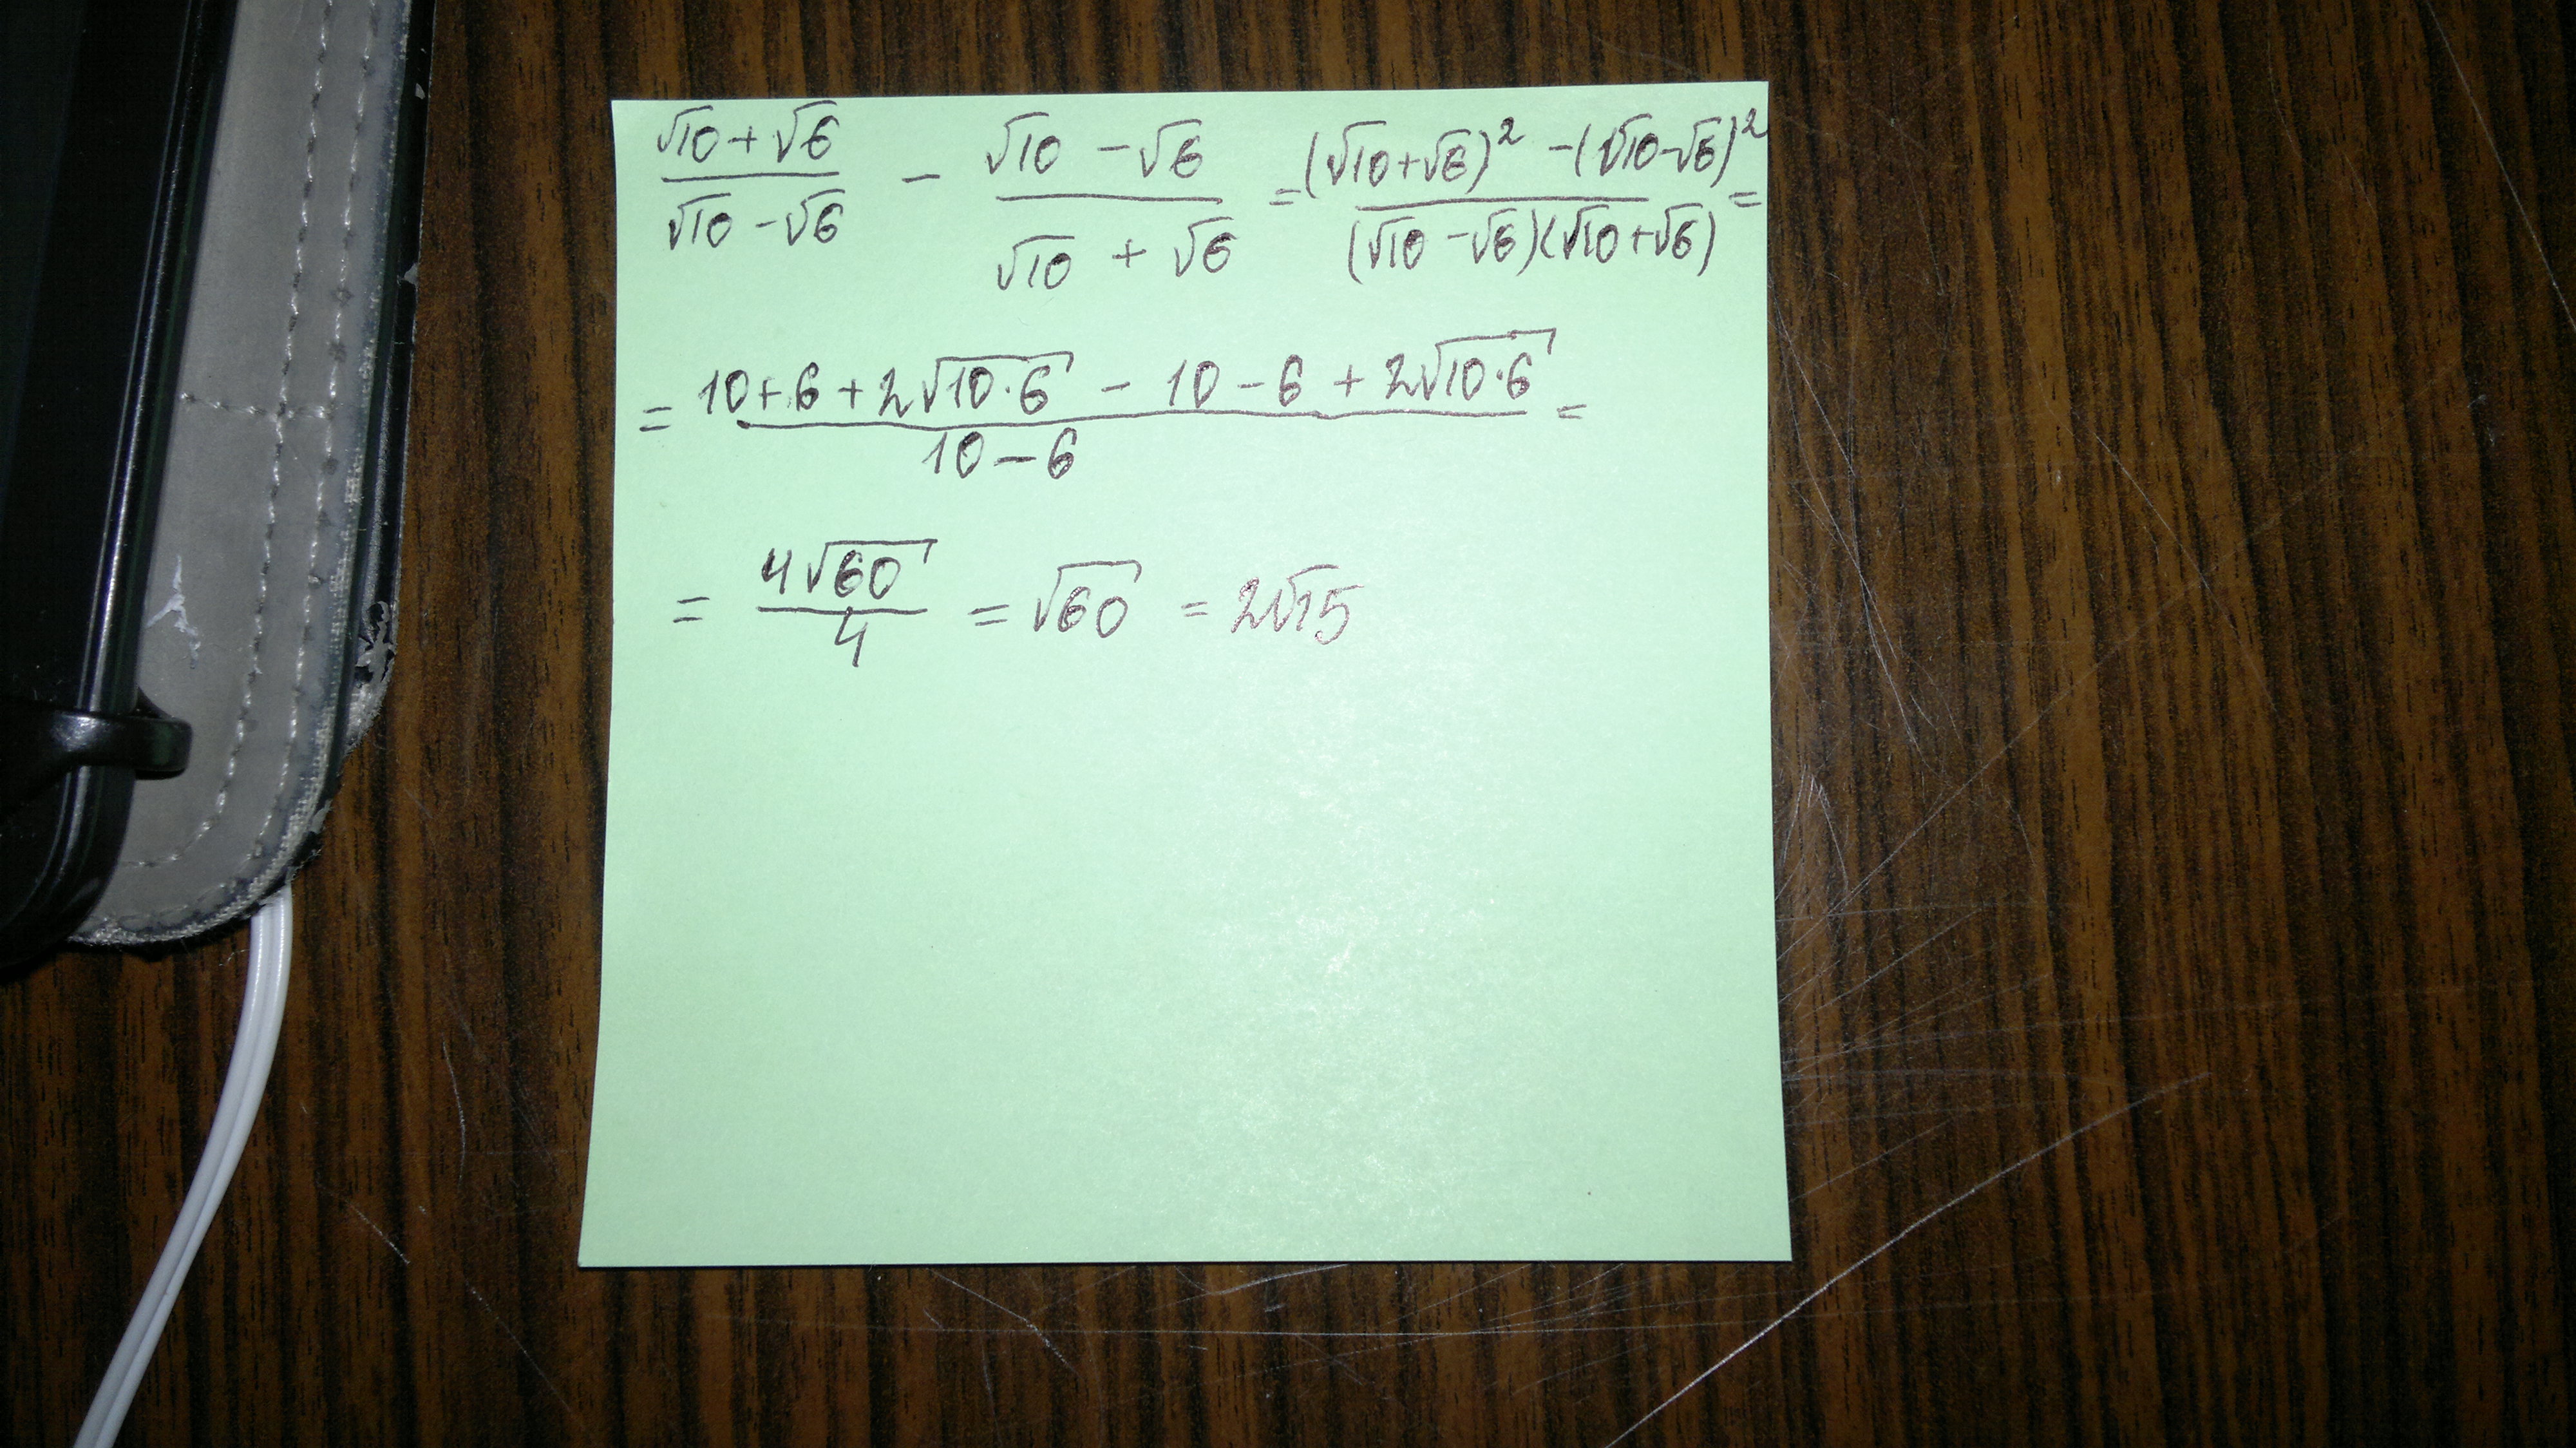 (√10+√6)/(√10-√6) - (√10-√6)/(√10+√6) = ((√10+√6)² - (√10-√6)²)/((√10-√6)(√10+√6)) =
= (10+6+2√(10·6) - 10-6+2√(10·6))/(10-6) =
= 4√60/4 = √60 = 2√15